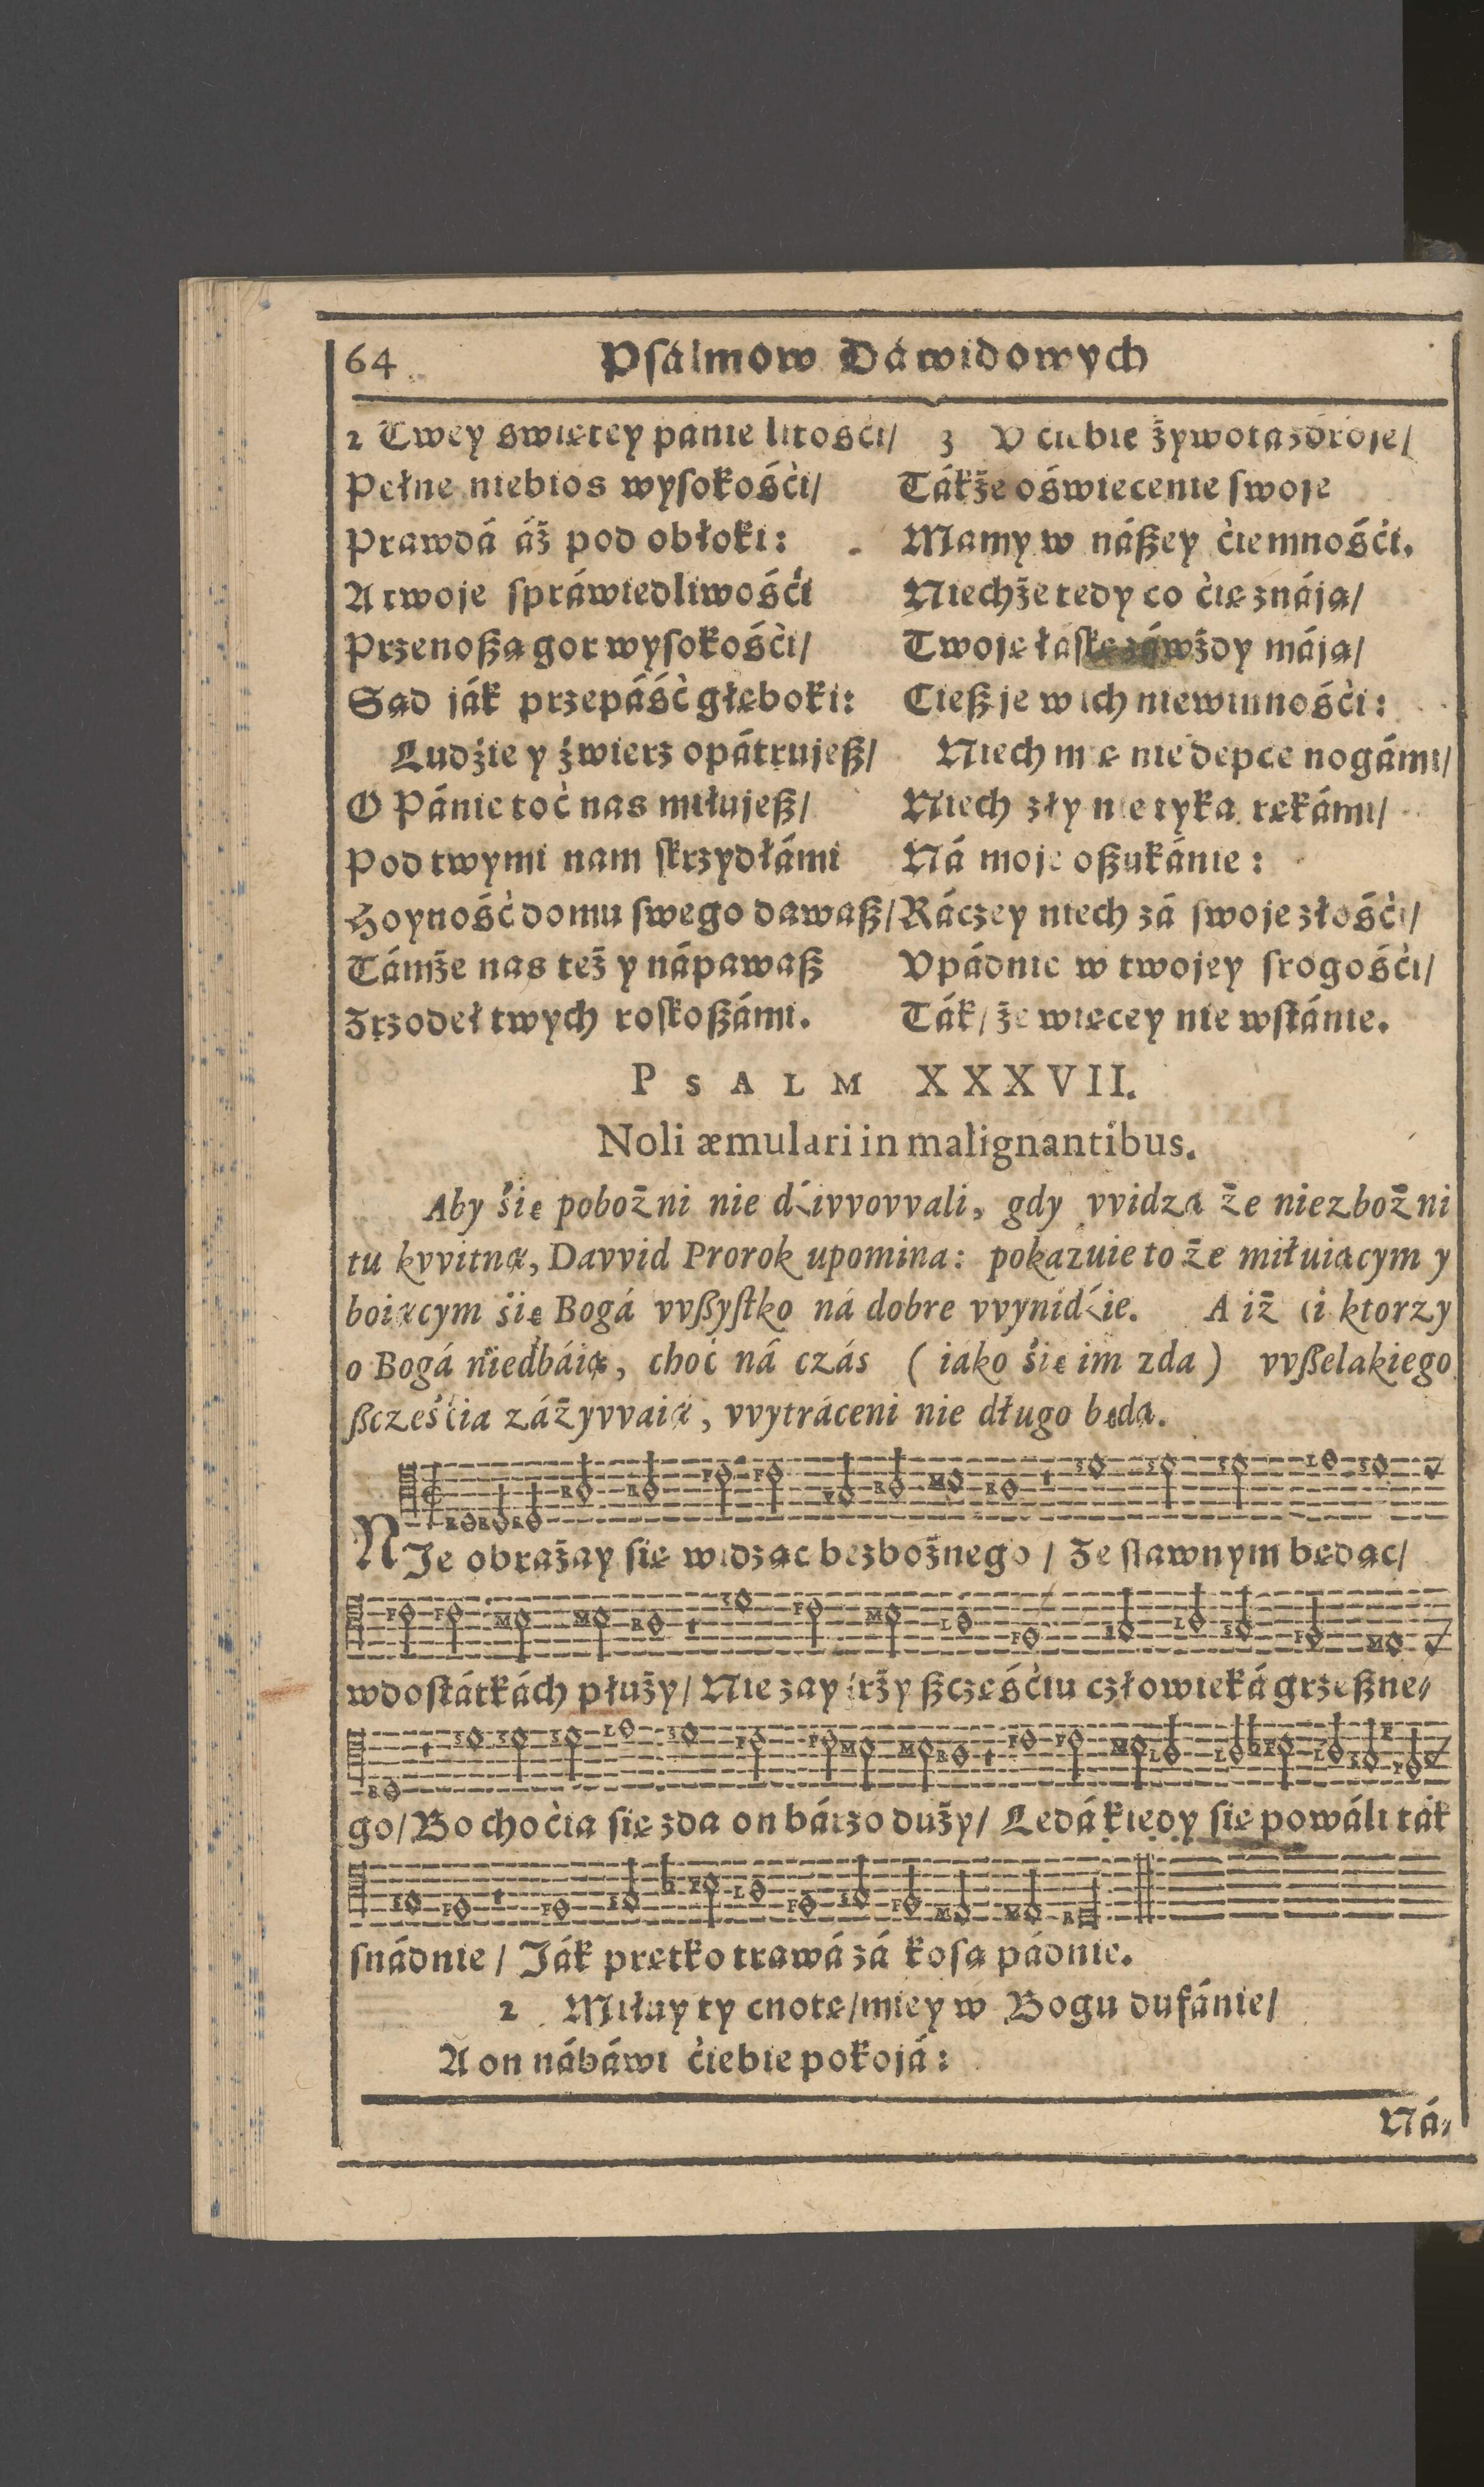 64 Psalmow Dáwidowych
2 Twey swiętey panie litośći/
Pełne niebios wysokośći/
Prawdá áż pod obłoki:
A twoje spráwiedliwośći
Przenoßą gor wysokośći/
Sąd ják przepáść głęboki:
Ludźie y źwierz opátrujeß/
O Pánie toć nas miłujeß/
Pod twymi nam skrzydłámi
Hoyność domu swego dawaß/
Támże nas też y nápawaß
Zrzodeł twych roskoßámi.
3 V ćiebie żywota zdroje/
Tákże oświecenie swoje
Mamy w náßey ćiemnośći.
Niechże tedy co ćię znáją/
Twoję łaskę záwżdy máją/
Cieß je w ich niewinnośći:
Niech mię nie depce nogámi/
Niech zły nie tyka rękámi/
Ná moje oßukánie:
Ráczey niech zá swoje złośći/
Vpádnie w twojey srogośći/
Ták/ że więcey nie wstánie.
PSALM XXXVII.
Noli æmulari in malignantibus.
Aby śię pobożni nie dźivvovvali, gdy vvidzą że niezbożni
tu kvvitną, Davvid Prorok upomina: pokazuie to że miłuiącym y
boiącym śię Bogá vvßystko ná dobre vvynidźie. A iż ći ktorzy
o Bogá niedbáią, choć ná czás (iáko śię im zda) vvßelakiego
ßcześćia záżyvvaią, vvytráceni nie długo będą.
NJe obrażay się widząc bezbożnego / Ze sławnym będąc/
wdostátkách płuży/ Nie zayźrży ßczęśćiu człowieká grzeßne-
go/ Bo choćia się zda on bárzo duży/ Ledá kiedy się powáli ták
snádnie / Ják prętko trawá zá kosą pádnie.
2 Miłuy ty cnotę/ miey w Bogu dufánie/
A on nábáwi ćiebie pokojá:
Ná-